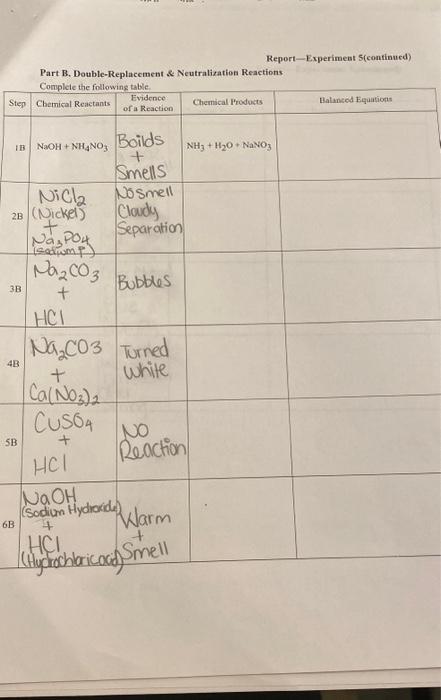 Report—Experiment 5(continued)
Part B. Double-Replacement & Neutralization Reactions
Complete the following table.
Step Chemical Reactants Evidence of a Reaction Chemical Products Balanced Equations
1B NaOH + NH₄NO₃ Boilds + Smells NH₃ + H₂O + NaNO₃
2B NiCl₂ (Nickel) + Na₃PO₄ (sodium P) No Smell Cloudy Separation
3B Na₂CO₃ + HCl Bubbles
4B Na₂CO3 + Ca(NO₃)₂ Turned White
5B CuSO₄ + HCl NO Reaction
6B NaOH (Sodium Hydroxide) + HCl (Hydrochloric acid) Warm + Smell